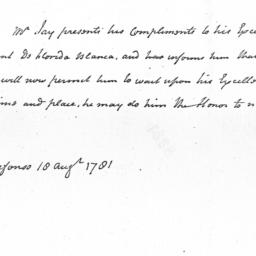 Mr Jay presents his Compliments to his Excel
nt De Florida blanca, and has informs him that
will now permit him to wait upon his Excelle
ime and place, he may do him the Honor to n
efonso 18 Augt 1781